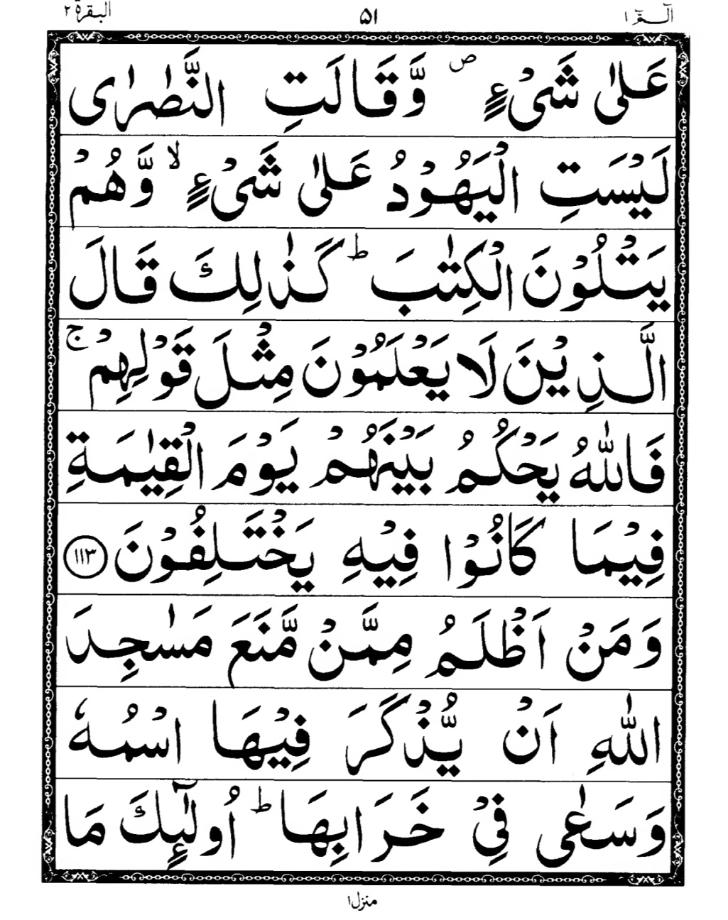 الٓمّٓ ١ ٥١ البقرة ٢
عَلٰی شَیْءٍ ۪ وَّقَالَتِ النَّصٰرٰی
لَیْسَتِ الْیَهُوْدُ عَلٰی شَیْءٍ ۙ وَّهُمْ
یَتْلُوْنَ الْكِتٰبَ ؕ كَذٰلِكَ قَالَ
الَّذِیْنَ لَا یَعْلَمُوْنَ مِثْلَ قَوْلِهِمْ ۚ
فَاللّٰهُ یَحْكُمُ بَیْنَهُمْ یَوْمَ الْقِیٰمَةِ
فِیْمَا كَانُوْا فِیْهِ یَخْتَلِفُوْنَ ﴿۱۱۳﴾
وَمَنْ اَظْلَمُ مِمَّنْ مَّنَعَ مَسٰجِدَ
اللّٰهِ اَنْ یُّذْكَرَ فِیْهَا اسْمُهٗ
وَسَعٰی فِیْ خَرَابِهَا ؕ اُولٰٓىِٕكَ مَا
منزل ١